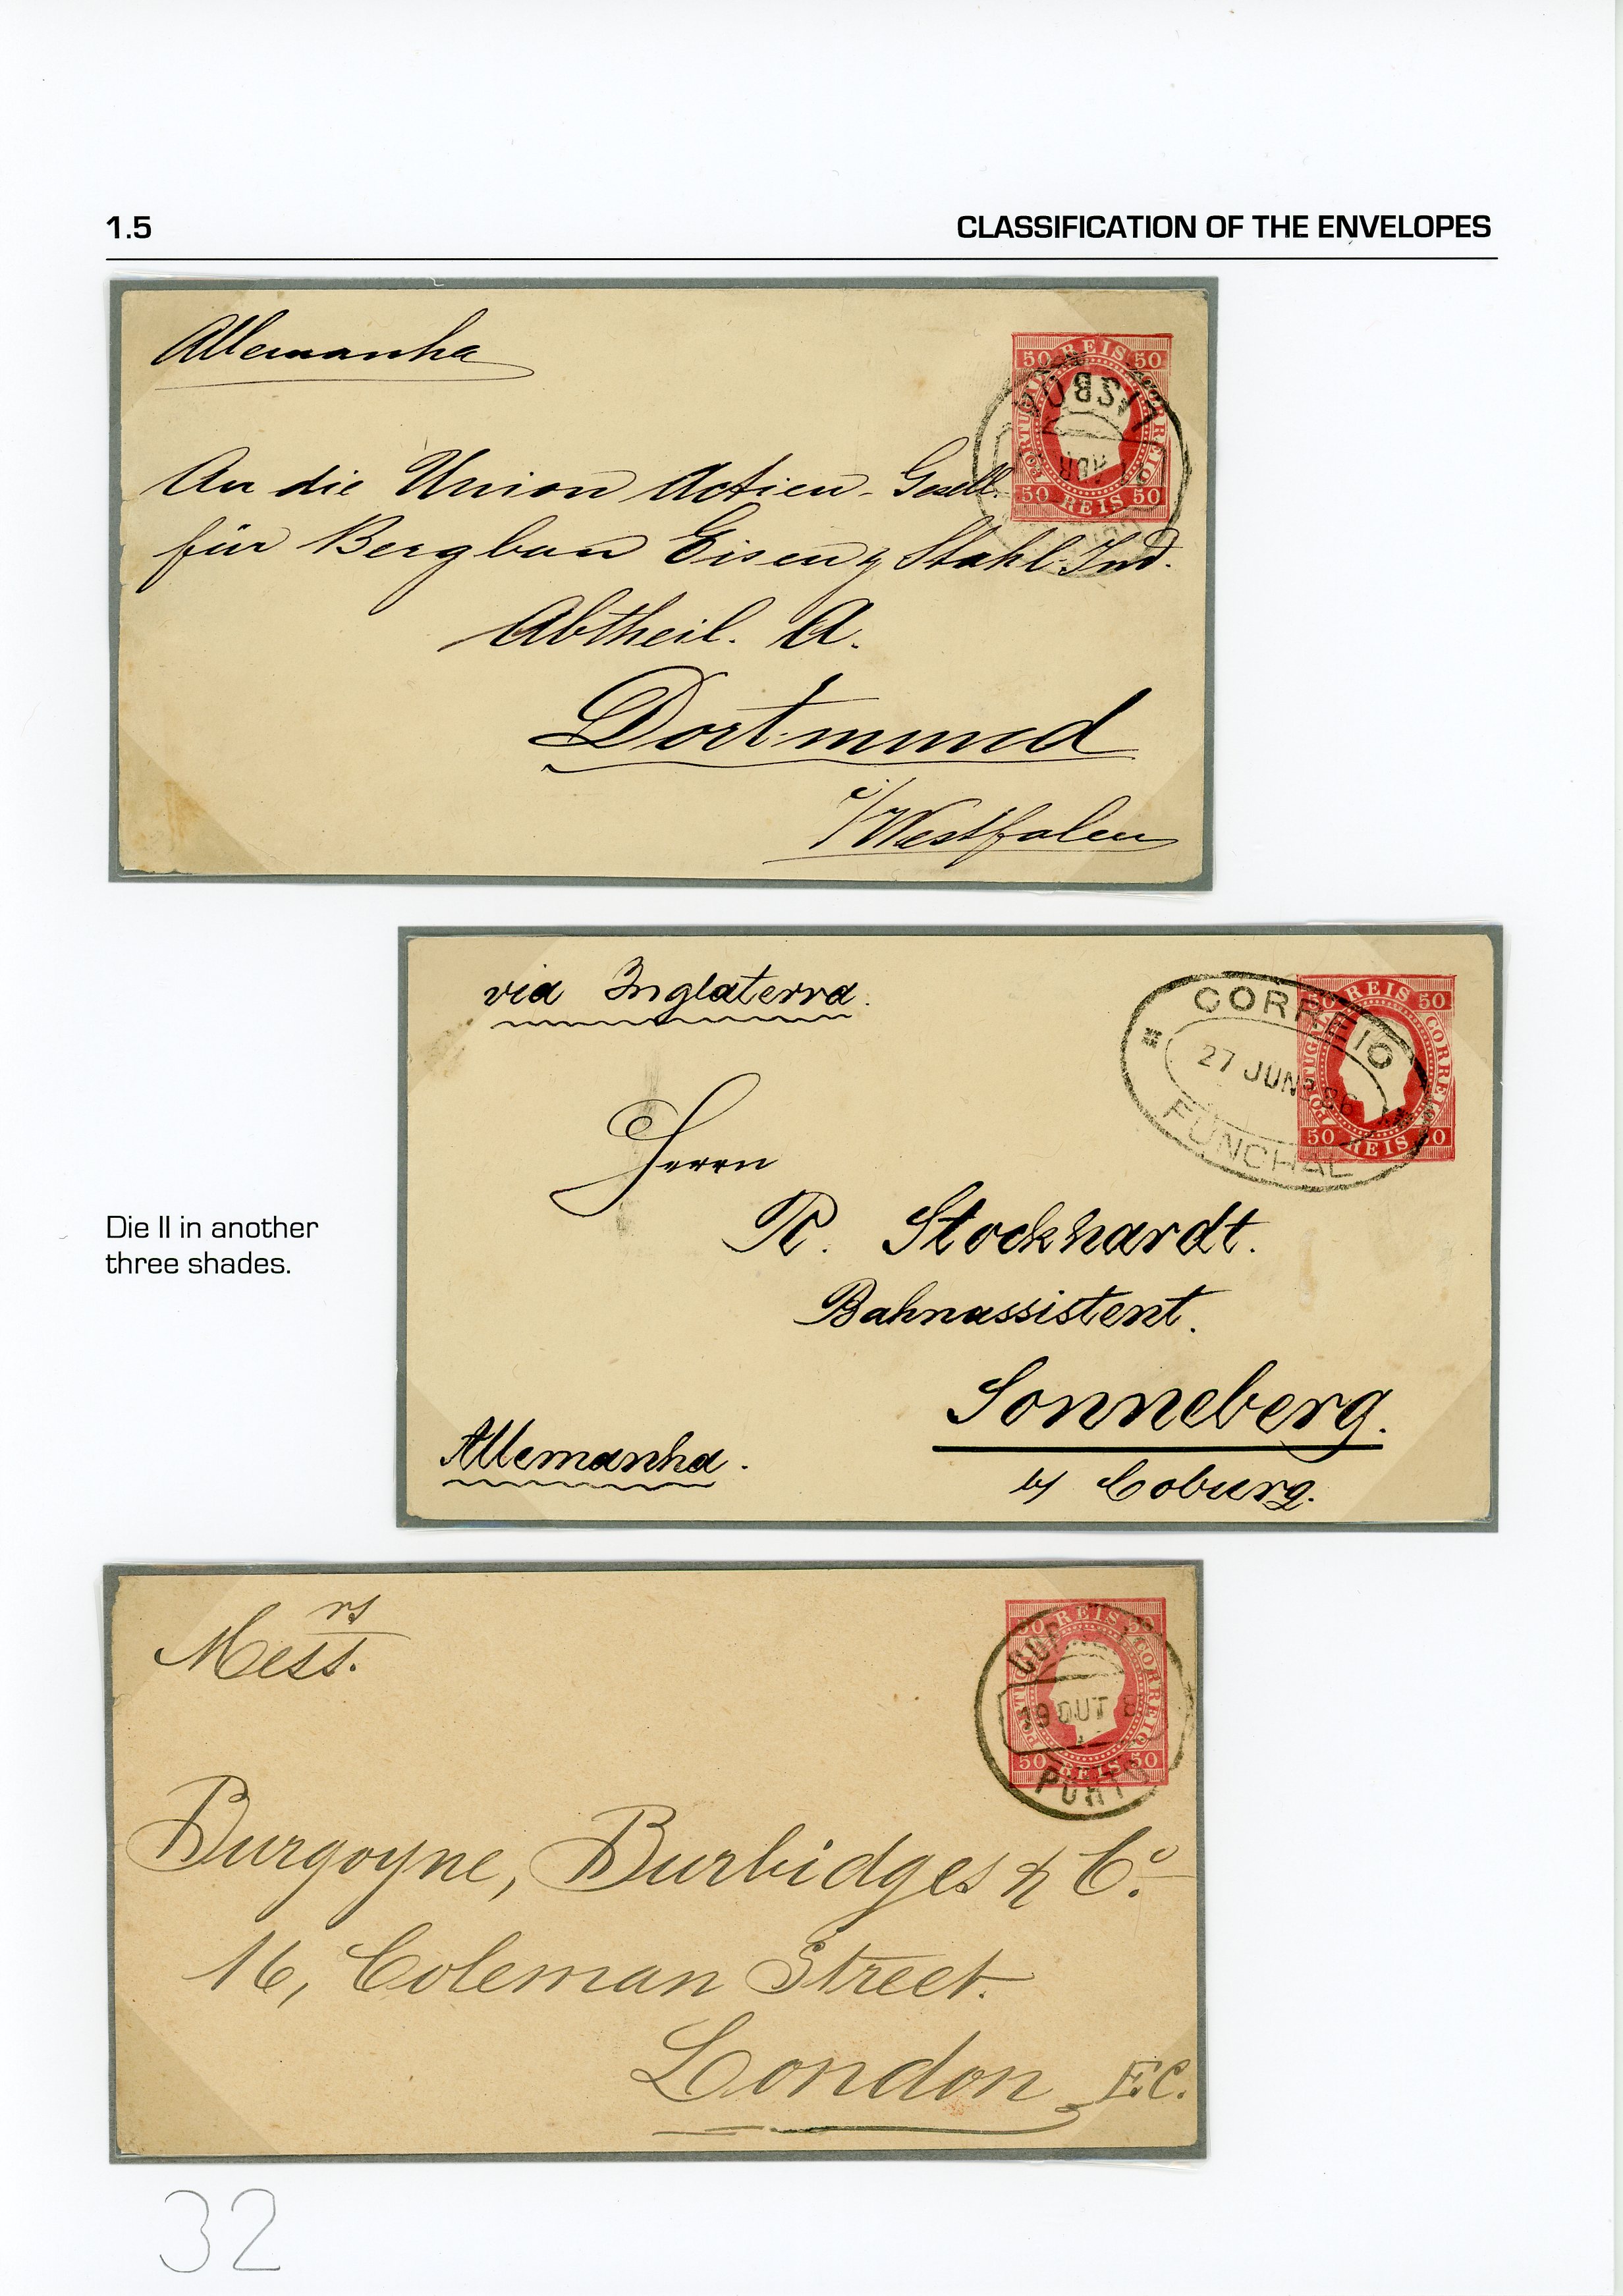 1.5 CLASSIFICATION OF THE ENVELOPES
Allemanha
50 REIS 50
CORREIO
LISBOA
50 REIS 50
An die Union Actien-Gesell.
für Bergbau Eisen & Stahl Ind.
Abtheil. A.
Dortmund
i/Westfalen
via Inglaterra.
50 REIS 50
CORREIO
CORREIO
27 JUN 86
FUNCHAL
50 REIS 50
Herrn
R. Stockhardt.
Bahnassistent.
Sonneberg.
b/ Coburg.
Allemanha.
Die II in another
three shades.
Messrs.
50 REIS 50
CORREIO
19 OUT 8
PORTO
50 REIS 50
Burgoyne, Burbidges & Co.
16, Coleman Street.
London E.C.
32